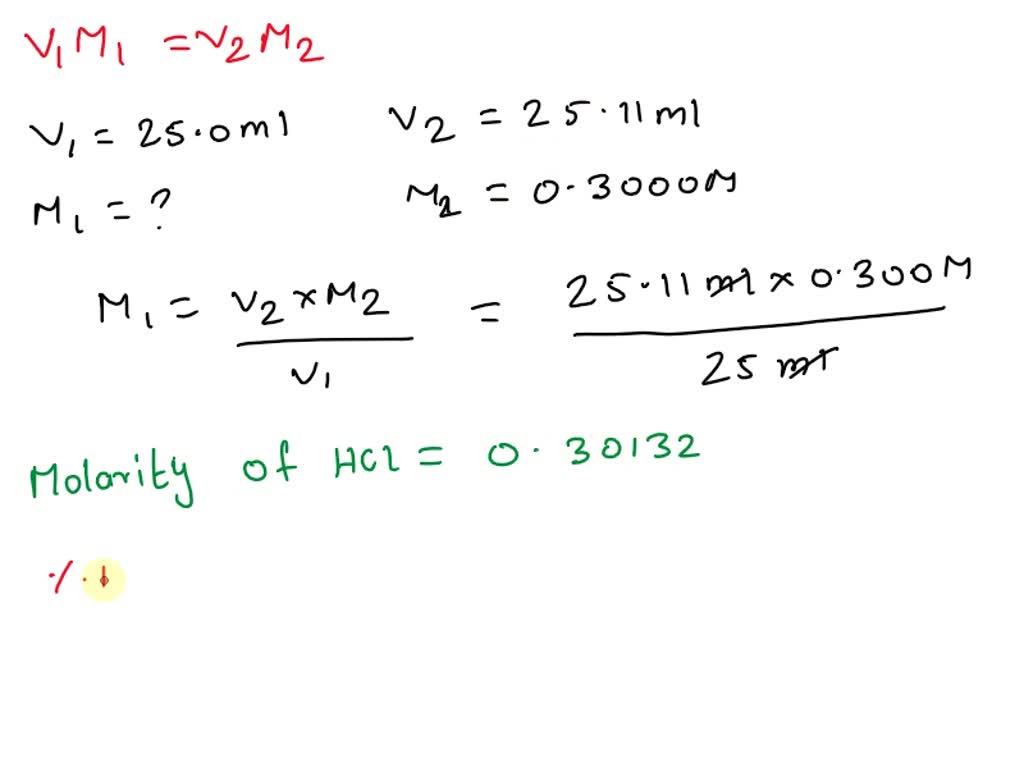 V₁M₁ = V₂M₂
V₁ = 25.0ml V₂ = 25.11ml
M₁ = ? M₂ = 0.3000M
M₁ = V₂ x M₂ / V₁ = 25.11 ml x 0.300M / 25 ml
Molarity of HCl = 0.30132
%